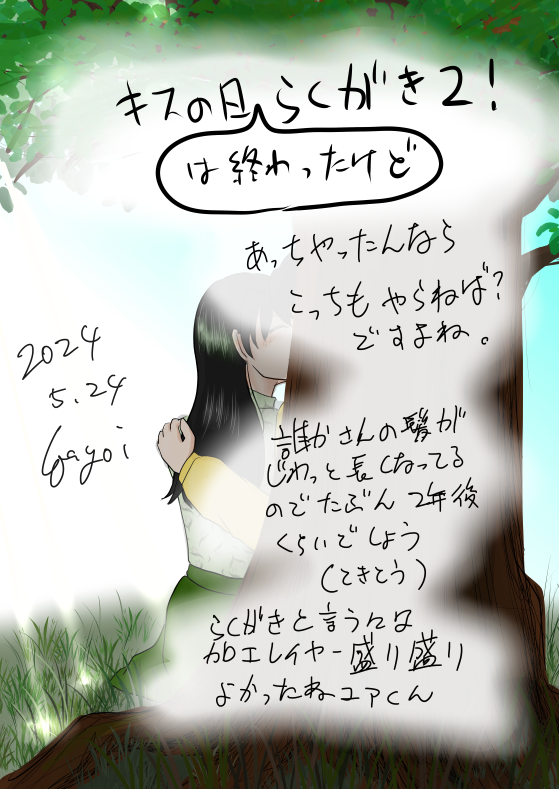 キスの日らくがき2!
は終わったけど
あっちやったんなら
こっちも やらねば?
ですよね。
2024
5.24
誰かさんの髪が
じわっと長くなってる
のでたぶん 2年後
くらいでしょう
(てきとう)
らくがきと言うには
加工レイヤー盛り盛り
よかったねユアくん